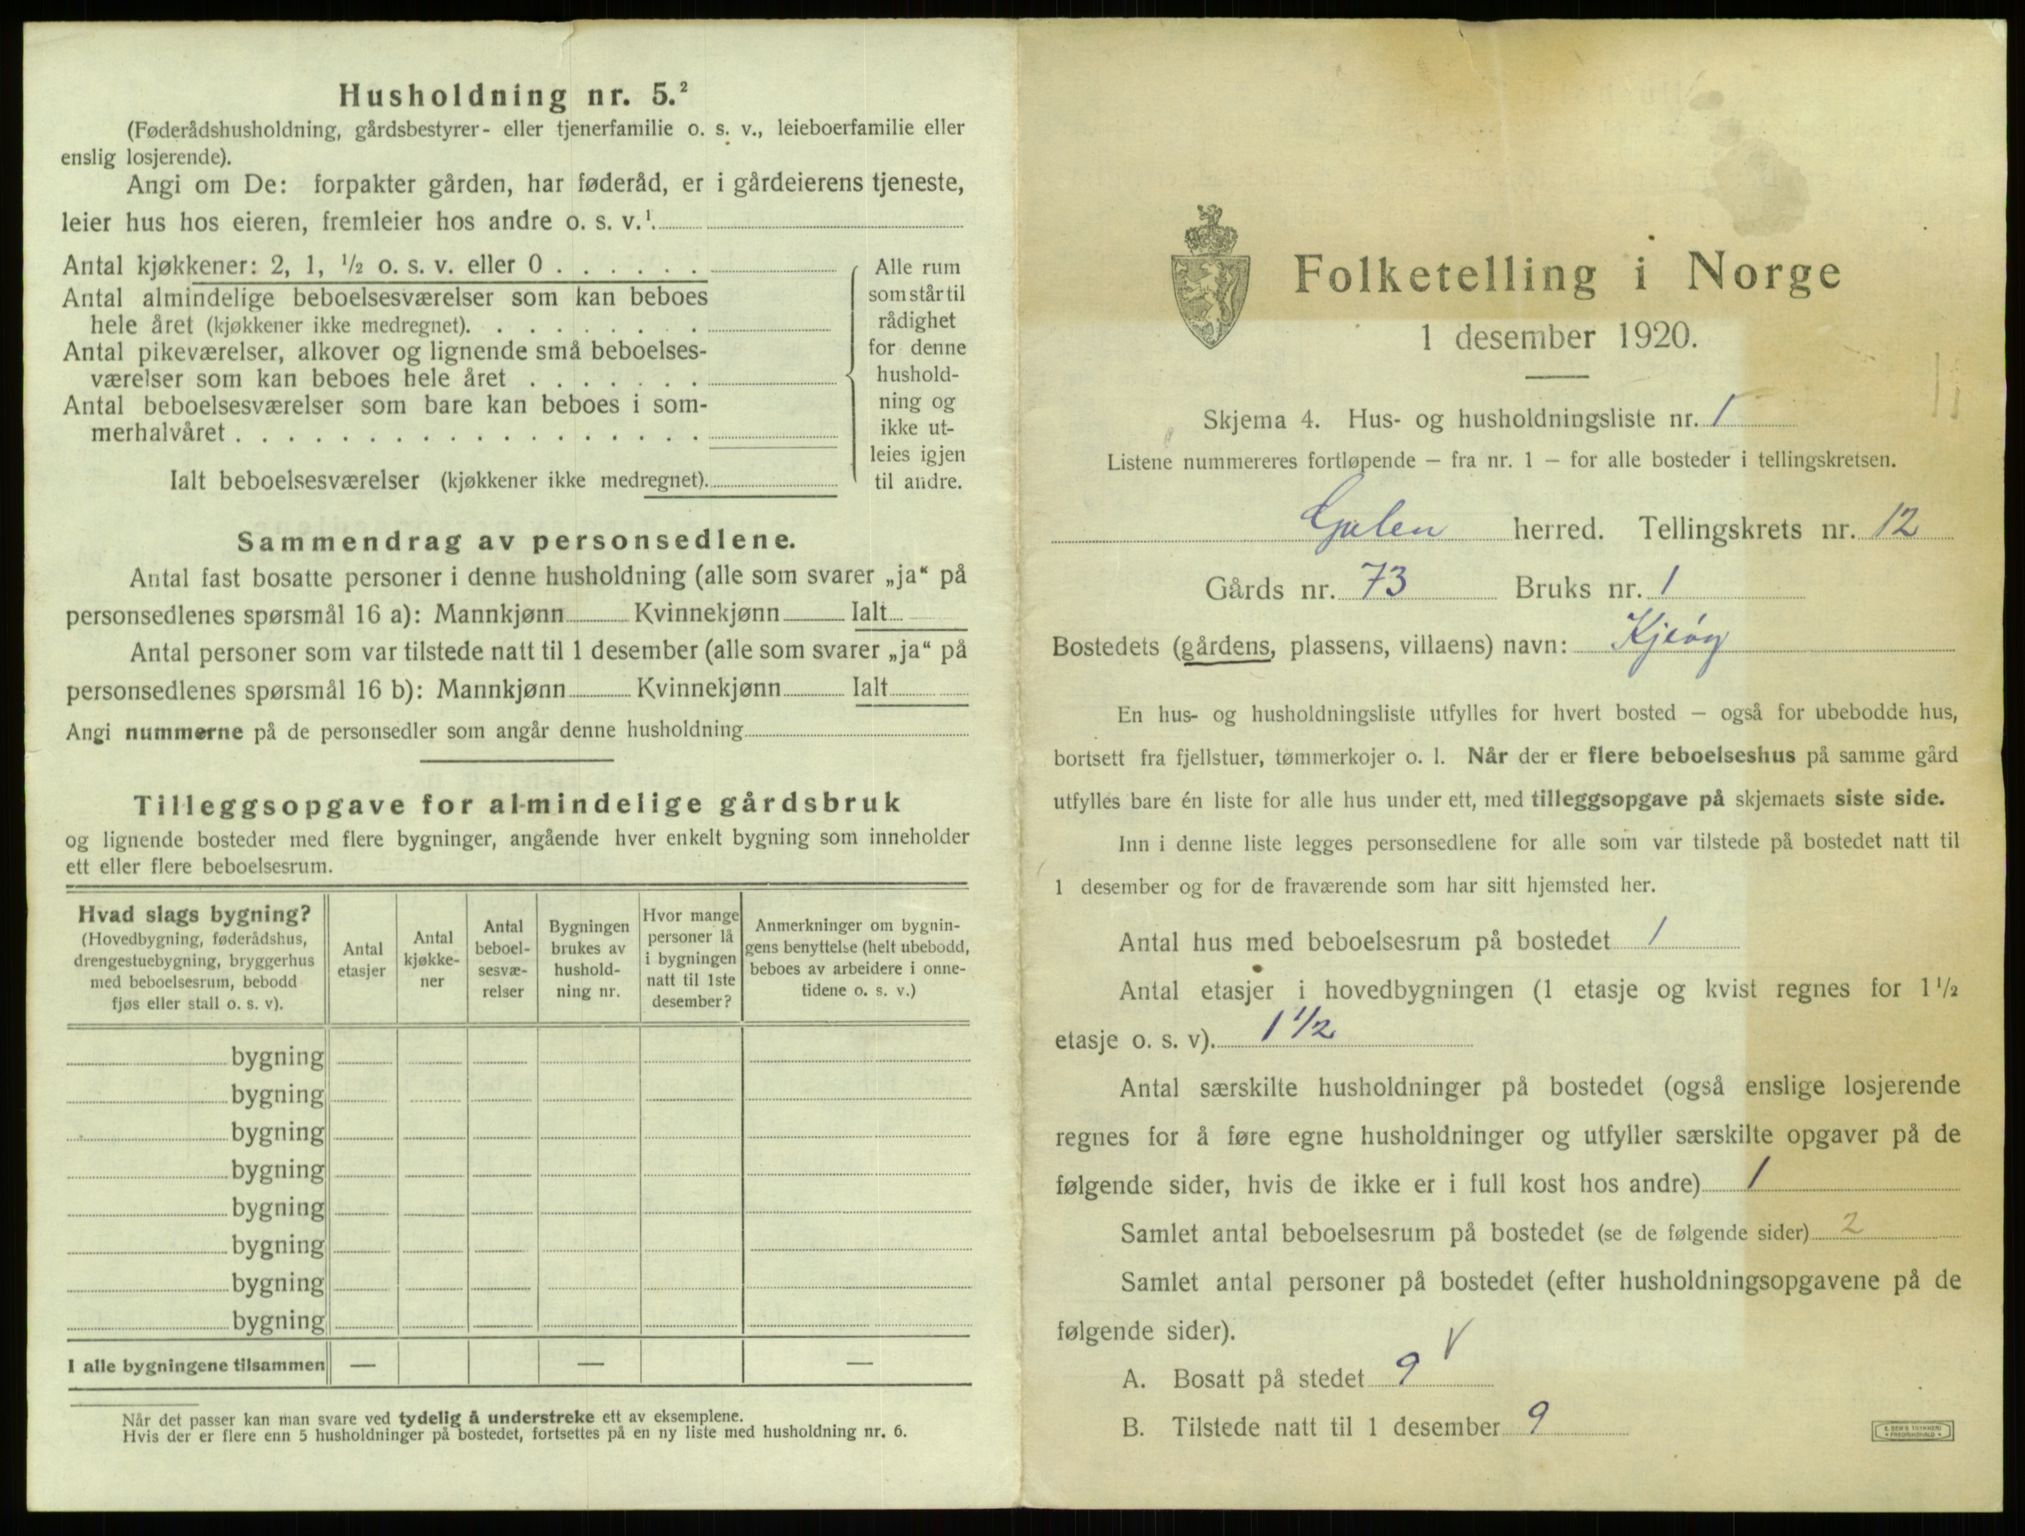 Husholdning nr. 5.²
(Føderådshusholdning, gårdsbestyrer- eller tjenerfamilie o. s. v., leieboerfamilie eller
enslig losjerende).
Angi om De: forpakter gården, har føderåd, er i gårdeierens tjeneste,
leier hus hos eieren, fremleier hos andre o. s. v.¹
Antal kjøkkener: 2, 1, ½ o. s. v. eller 0 . . . . . .
Antal almindelige beboelsesværelser som kan beboes
hele året (kjøkkener ikke medregnet). . . . . . . . .
Antal pikeværelser, alkover og lignende små beboelses-
værelser som kan beboes hele året . . . . . . .
Antal beboelsesværelser som bare kan beboes i som-
merhalvåret . . . . . . . . . . . . . . . . . .
Ialt beboelsesværelser (kjøkkener ikke medregnet).
Alle rum
som står til
rådighet
for denne
hushold-
ning og
ikke ut-
leies igjen
til andre.
Sammendrag av personsedlene.
Antal fast bosatte personer i denne husholdning (alle som svarer „ja“ på
personsedlenes spørsmål 16 a): Mannkjønn Kvinnekjønn Ialt
Antal personer som var tilstede natt til 1 desember (alle som svarer „ja“ på
personsedlenes spørsmål 16 b): Mannkjønn Kvinnekjønn Ialt
Angi nummerne på de personsedler som angår denne husholdning
Tilleggsopgave for almindelige gårdsbruk
og lignende bosteder med flere bygninger, angående hver enkelt bygning som inneholder
ett eller flere beboelsesrum.
Hvad slags bygning?
(Hovedbygning, føderådshus,
drengestuebygning, bryggerhus
med beboelsesrum, bebodd
fjøs eller stall o. s. v).
Antal
etasjer
Antal
kjøkke-
ner
Antal
beboel-
sesvæ-
relser
Bygningen
brukes av
hushold-
ning nr.
Hvor mange
personer lå
i bygningen
natt til 1ste
desember?
Anmerkninger om bygnin-
gens benyttelse (helt ubebodd,
beboes av arbeidere i onne-
tidene o. s. v.)
bygning
bygning
bygning
bygning
bygning
bygning
bygning
bygning
I alle bygningene tilsammen — — —
Når det passer kan man svare ved tydelig å understreke ett av eksemplene.
Hvis der er flere enn 5 husholdninger på bostedet, fortsettes på en ny liste med husholdning nr. 6.
Folketelling i Norge
1 desember 1920.
Skjema 4. Hus- og husholdningsliste nr. 1
Listene nummereres fortløpende – fra nr. 1 – for alle bosteder i tellingskretsen.
Gulen herred. Tellingskrets nr. 12
Gårds nr. 73 Bruks nr. 1
Bostedets (gårdens, plassens, villaens) navn: Kjeøy
En hus- og husholdningsliste utfylles for hvert bosted – også for ubebodde hus,
bortsett fra fjellstuer, tømmerkojer o. l. Når der er flere beboelseshus på samme gård
utfylles bare én liste for alle hus under ett, med tilleggsopgave på skjemaets siste side.
Inn i denne liste legges personsedlene for alle som var tilstede på bostedet natt til
1 desember og for de fraværende som har sitt hjemsted her.
Antal hus med beboelsesrum på bostedet 1
Antal etasjer i hovedbygningen (1 etasje og kvist regnes for 1½
etasje o. s. v). 1½
Antal særskilte husholdninger på bostedet (også enslige losjerende
regnes for å føre egne husholdninger og utfyller særskilte opgaver på de
følgende sider, hvis de ikke er i full kost hos andre) 1
Samlet antal beboelsesrum på bostedet (se de følgende sider) 2
Samlet antal personer på bostedet (efter husholdningsopgavene på de
følgende sider).
A. Bosatt på stedet 9 V
B. Tilstede natt til 1 desember 9